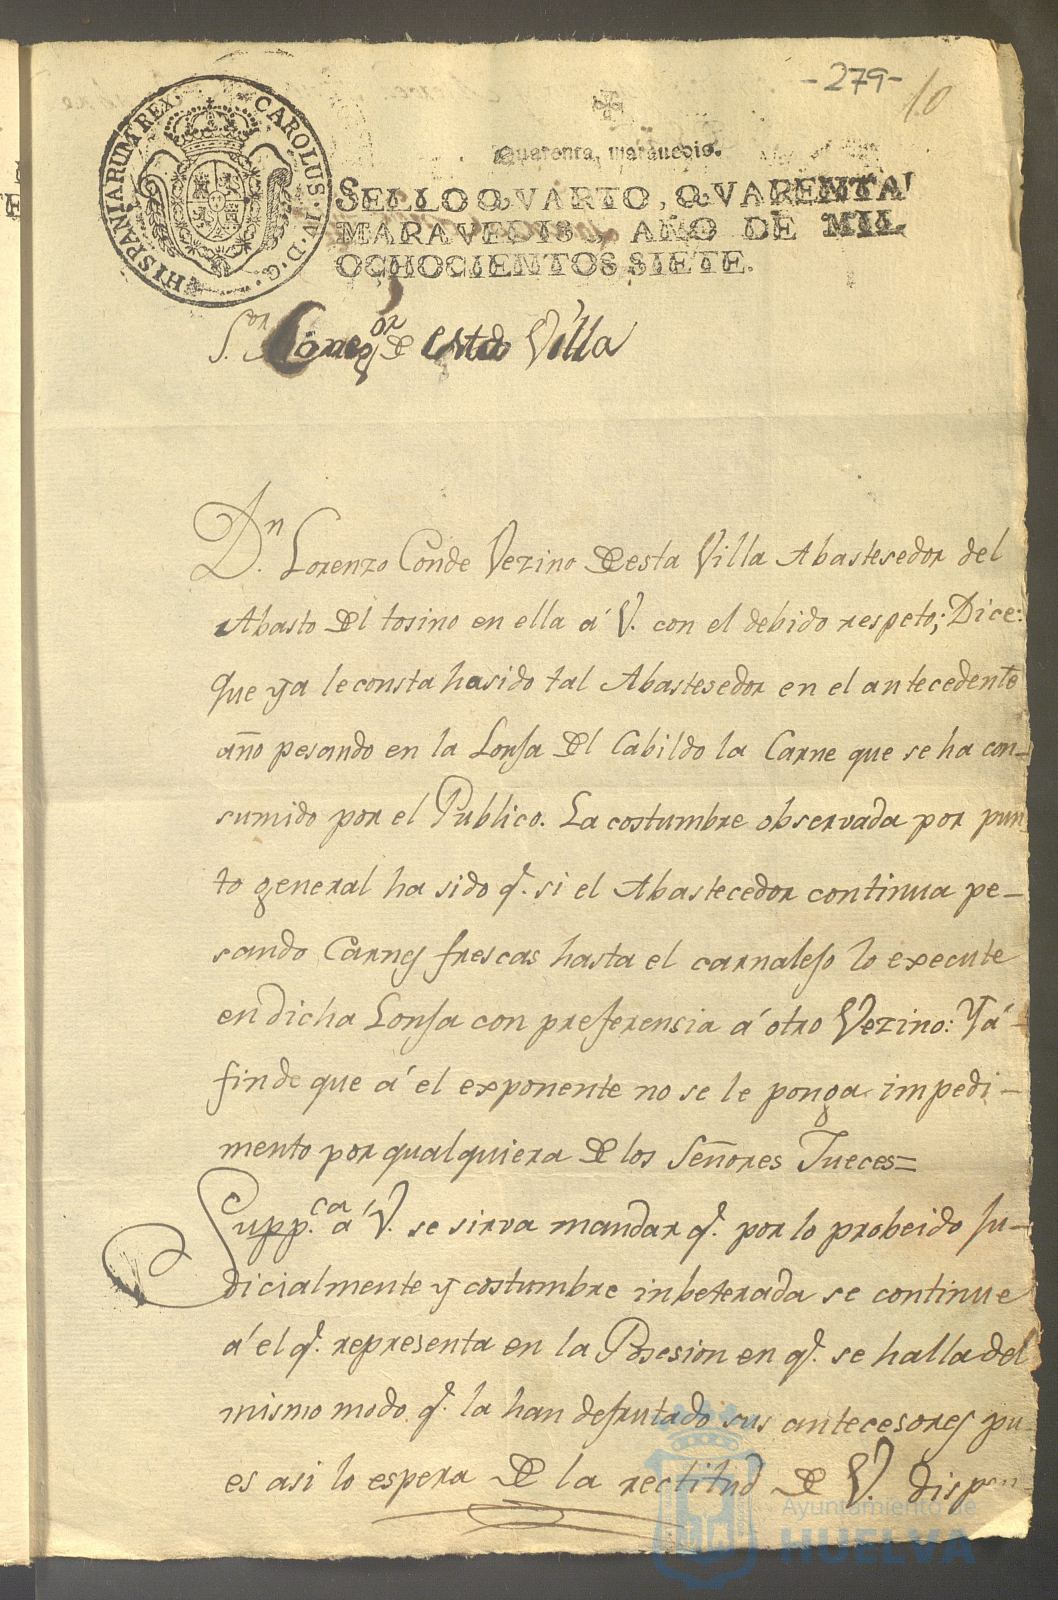 -279-
10
HISPANIARUM REX. CAROLUS. IV. D. G.
Quarenta, marauedis.
SELLO QVARTO, QVARENTA
MARAVEDIS, AÑO DE MIL
OCHOCIENTOS SIETE.
S.or Correg.or de esta Villa
D.n Lorenzo Conde Vezino de esta Villa Abastesedor del
Abasto del tosino en ella á V. con el debido respeto; Dice:
Que ya le consta ha sido tal Abastesedor en el antecedente
año pesando en la Lonja del Cabildo la Carne que se ha con-
sumido por el Publico. La costumbre observada por pun
to general ha sido q.e si el Abastecedor continua pe-
sando Carnes frescas hasta el carnalejo lo execute
en dicha Lonja con preferensia á otro Vezino: Y á
fin de que á el exponente no se le ponga impedi-
mento por qualquiera de los Señores Jueces=
Supp.ca á V. se sirva mandar q.e por lo probeido Ju-
dicialmente y costumbre inbeterada se continue
á el q.e representa en la Posesion en q.e se halla del
mismo modo q.e la han defrutado sus antecesores pu-
es asi lo espera de la rectitud de V.
Ayuntamiento de
HUELVA